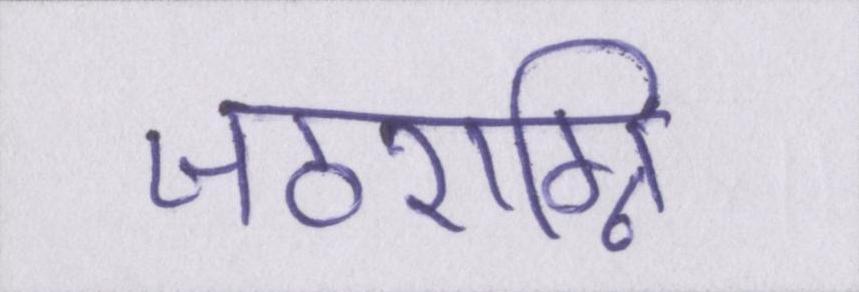 जठराग्नि